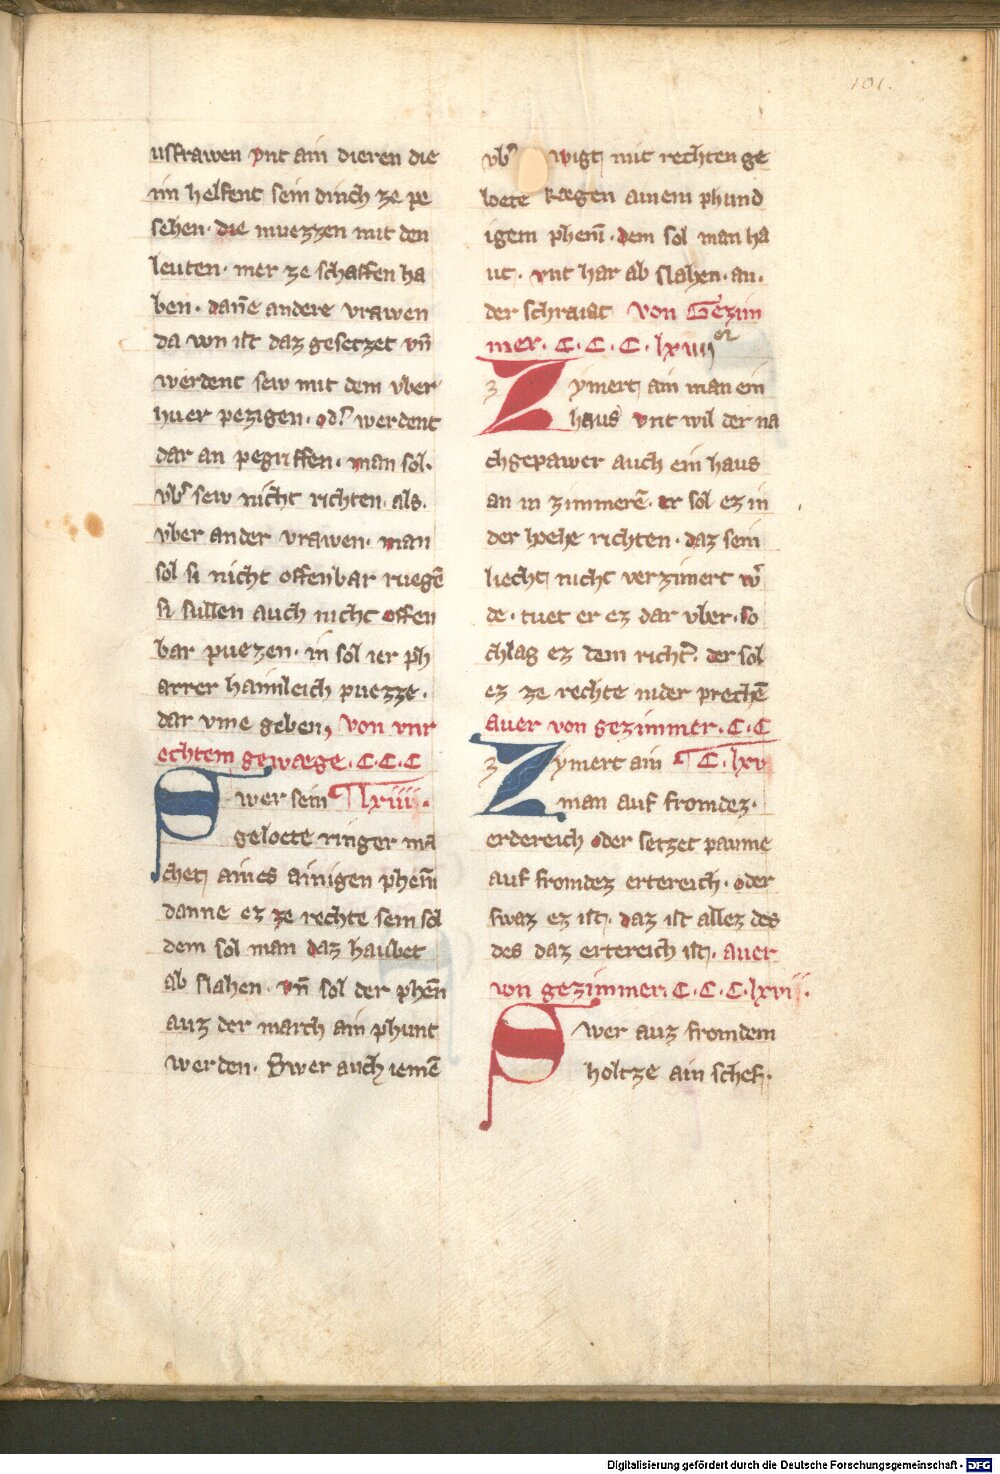 101.
usfrawen vnt ain dieren die
im helfent sein dinch ze pe
sehen. die muezzen mit den
leuten. mer ze schaffen ha
ben. dañe andere vrawen
da von ist daz gesetzet vn̄
werdent sew mit dem vber
huer pezigen. od᷑ werdent
dar an pegriffen. man sol.
vb᷑ sew nicht richten. als.
vber ander vrawen. man
sol si nicht offenbar ruegē
si sullen auch nicht offen
bar puezzen. in sol ier ph
arrer haimleich puezze.
dar vme geben, von vnr
echtem gewæge. C.C.C
Swer sein lxiiii.
geloete ringer ma
chet aines ainigen phenñ
danne ez ze rechte sein sol
dem sol man daz haubet
ab slahen. vn̄ sol der phēn
auz der march ain phunt
werden. Swer auch iemē
vb᷑ wigt mit rechten ge
loete kægen ainem phund
igem phenñ. dem sol man ha
ut. vnt har ab slahen. an.
der schraiat von Gezim
mer. C.C.C.lxiiii
Zymert ain man ein
haus vnt wil der na
chgepawer auch ein haus
an in zimmerē. er sol ez in
der hoehe richten. daz sein
liecht nicht verzimert w᷑
de. tuet er ez dar vber. so
chlag ez dem richt᷑. der sol
ez ze rechte nider prechē
auer von gezimmer. C.C
Zymert ain C.lxv
man auf fromdez.
erdereich oder setzet paume
auf fromdez ertereich. oder
swaz ez ist. daz ist allez des
des daz ertereich ist. auer
von gezimmer. C.C.C.lxvi.
Swer auz fromdem
holtze ain schef.
Digitalisierung gefördert durch die Deutsche Forschungsgemeinschaft - DFG